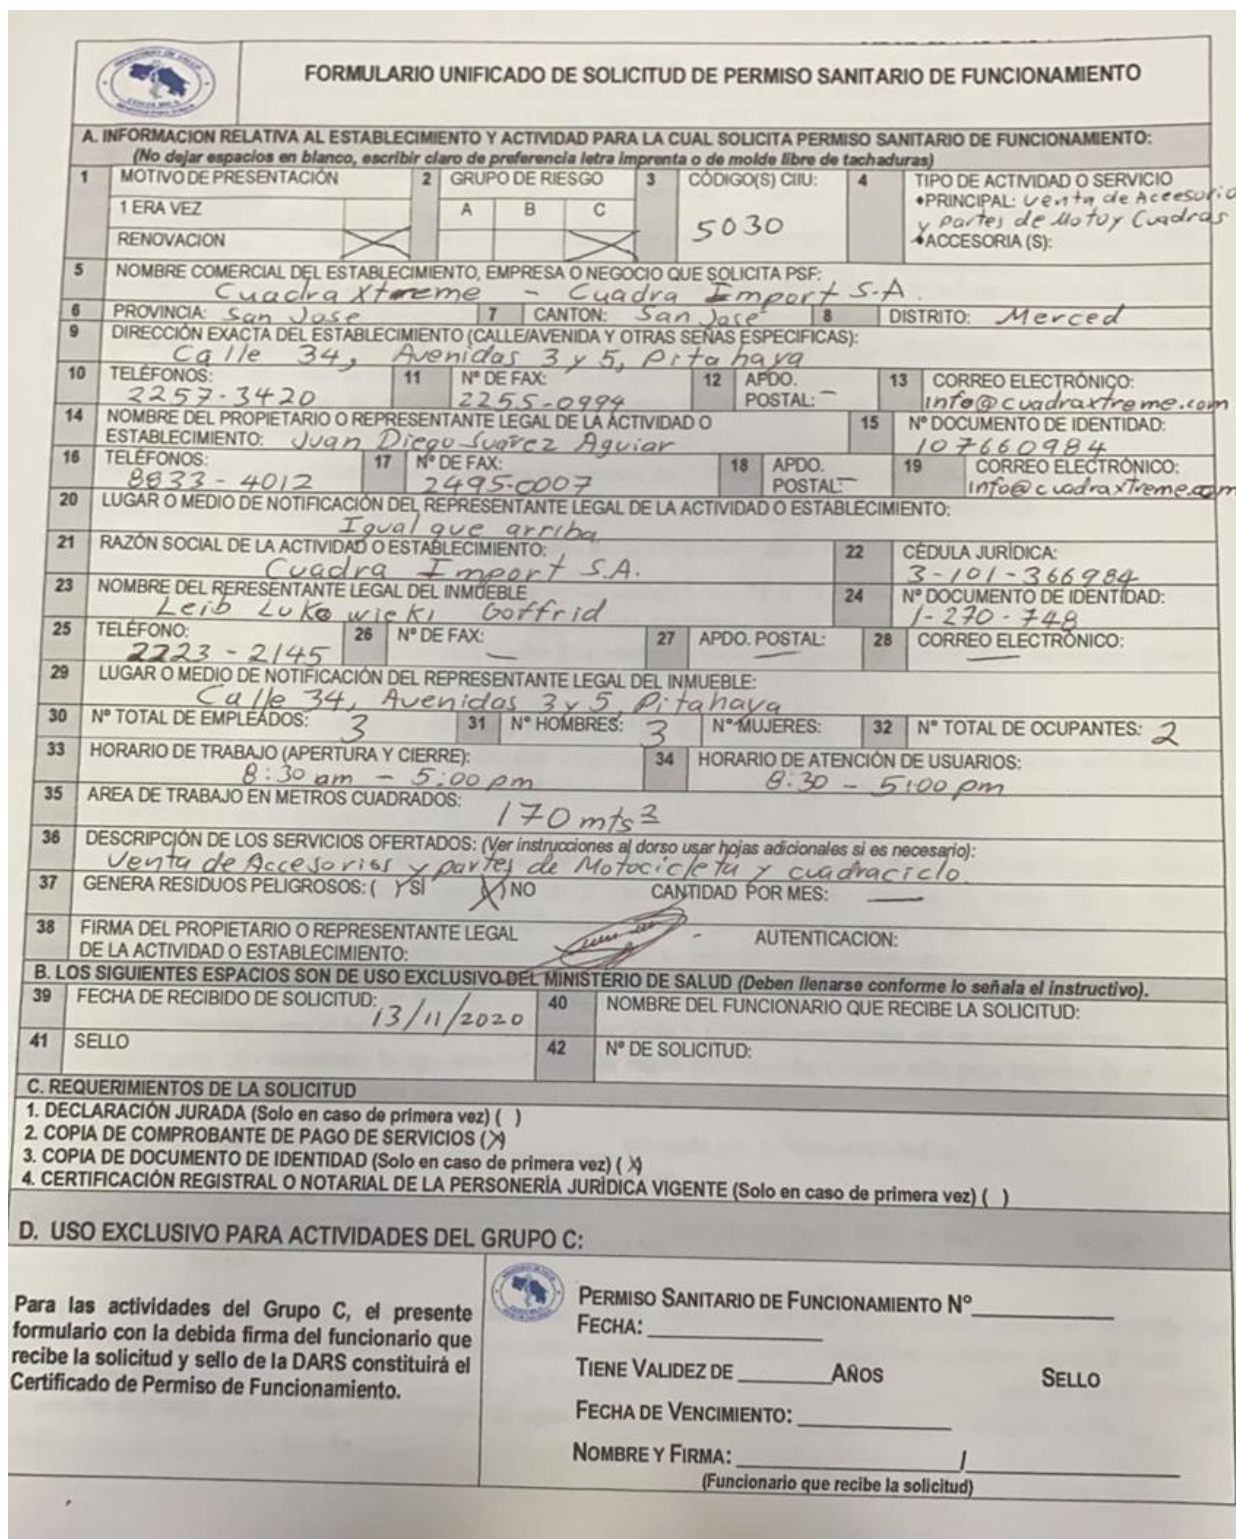 FORMULARIO UNIFICADO DE SOLICITUD DE PERMISO SANITARIO DE FUNCIONAMIENTO
A. INFORMACION RELATIVA AL ESTABLECIMIENTO Y ACTIVIDAD PARA LA CUAL SOLICITA PERMISO SANITARIO DE FUNCIONAMIENTO:
(No dejar espacios en blanco, escribir claro de preferencia letra imprenta o de molde libre de tachaduras)
1 MOTIVO DE PRESENTACIÓN 2 GRUPO DE RIESGO 3 CÓDIGO(S) CIIU: 4 TIPO DE ACTIVIDAD O SERVICIO
1 ERA VEZ A B C 5030 •PRINCIPAL: Venta de Accesorio
y partes de Moto y Cuadras
RENOVACION X X •ACCESORIA (S):
5 NOMBRE COMERCIAL DEL ESTABLECIMIENTO, EMPRESA O NEGOCIO QUE SOLICITA PSF:
Cuadra Xtreme - Cuadra Import S.A.
6 PROVINCIA: San Jose 7 CANTON: San Jose 8 DISTRITO: Merced
9 DIRECCIÓN EXACTA DEL ESTABLECIMIENTO (CALLE/AVENIDA Y OTRAS SEÑAS ESPECIFICAS):
Calle 34, Avenidas 3 y 5, Pitahaya
10 TELÉFONOS: 11 Nº DE FAX: 12 APDO. 13 CORREO ELECTRÓNICO:
2257-3420 2255-0994 POSTAL: — info@cuadraxtreme.com
14 NOMBRE DEL PROPIETARIO O REPRESENTANTE LEGAL DE LA ACTIVIDAD O 15 Nº DOCUMENTO DE IDENTIDAD:
ESTABLECIMIENTO: Juan Diego Suarez Aguiar 107660984
16 TELÉFONOS: 17 Nº DE FAX: 18 APDO. 19 CORREO ELECTRÓNICO:
8833-4012 2495-0007 POSTAL — info@cuadraxtreme.com
20 LUGAR O MEDIO DE NOTIFICACIÓN DEL REPRESENTANTE LEGAL DE LA ACTIVIDAD O ESTABLECIMIENTO:
Igual que arriba
21 RAZÓN SOCIAL DE LA ACTIVIDAD O ESTABLECIMIENTO: 22 CÉDULA JURÍDICA:
Cuadra Import S.A. 3-101-366984
23 NOMBRE DEL RERESENTANTE LEGAL DEL INMUEBLE 24 Nº DOCUMENTO DE IDENTIDAD:
Leib Lukowieki Goffrid 1-270-748
25 TELÉFONO: 26 Nº DE FAX: 27 APDO. POSTAL: 28 CORREO ELECTRÓNICO:
2223-2145 — — —
29 LUGAR O MEDIO DE NOTIFICACIÓN DEL REPRESENTANTE LEGAL DEL INMUEBLE:
Calle 34, Avenidas 3 y 5, Pitahaya
30 Nº TOTAL DE EMPLEADOS: 3 31 Nº HOMBRES: 3 Nº MUJERES: 32 Nº TOTAL DE OCUPANTES: 2
33 HORARIO DE TRABAJO (APERTURA Y CIERRE): 34 HORARIO DE ATENCIÓN DE USUARIOS:
8:30 am - 5:00 pm 8:30 - 5:00 pm
35 AREA DE TRABAJO EN METROS CUADRADOS:
170 mts2
36 DESCRIPCIÓN DE LOS SERVICIOS OFERTADOS: (Ver instrucciones al dorso usar hojas adicionales si es necesario):
Venta de Accesorios y partes de Motocicleta y cuadraciclo.
37 GENERA RESIDUOS PELIGROSOS: ( ) SÍ (X) NO CANTIDAD POR MES: —
38 FIRMA DEL PROPIETARIO O REPRESENTANTE LEGAL AUTENTICACION:
DE LA ACTIVIDAD O ESTABLECIMIENTO:
B. LOS SIGUIENTES ESPACIOS SON DE USO EXCLUSIVO DEL MINISTERIO DE SALUD (Deben llenarse conforme lo señala el instructivo).
39 FECHA DE RECIBIDO DE SOLICITUD: 40 NOMBRE DEL FUNCIONARIO QUE RECIBE LA SOLICITUD:
13/11/2020
41 SELLO 42 Nº DE SOLICITUD:
C. REQUERIMIENTOS DE LA SOLICITUD
1. DECLARACIÓN JURADA (Solo en caso de primera vez) ( )
2. COPIA DE COMPROBANTE DE PAGO DE SERVICIOS (X)
3. COPIA DE DOCUMENTO DE IDENTIDAD (Solo en caso de primera vez) (X)
4. CERTIFICACIÓN REGISTRAL O NOTARIAL DE LA PERSONERÍA JURÍDICA VIGENTE (Solo en caso de primera vez) ( )
D. USO EXCLUSIVO PARA ACTIVIDADES DEL GRUPO C:
Para las actividades del Grupo C, el presente
formulario con la debida firma del funcionario que
recibe la solicitud y sello de la DARS constituirá el
Certificado de Permiso de Funcionamiento.
PERMISO SANITARIO DE FUNCIONAMIENTO Nº
FECHA:
TIENE VALIDEZ DE AÑOS SELLO
FECHA DE VENCIMIENTO:
NOMBRE Y FIRMA: /
(Funcionario que recibe la solicitud)